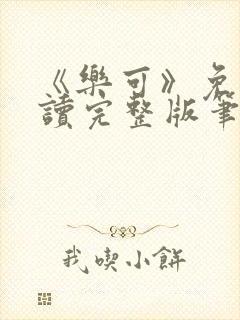 《樂可》免
讀完整版筆
我喫小餅